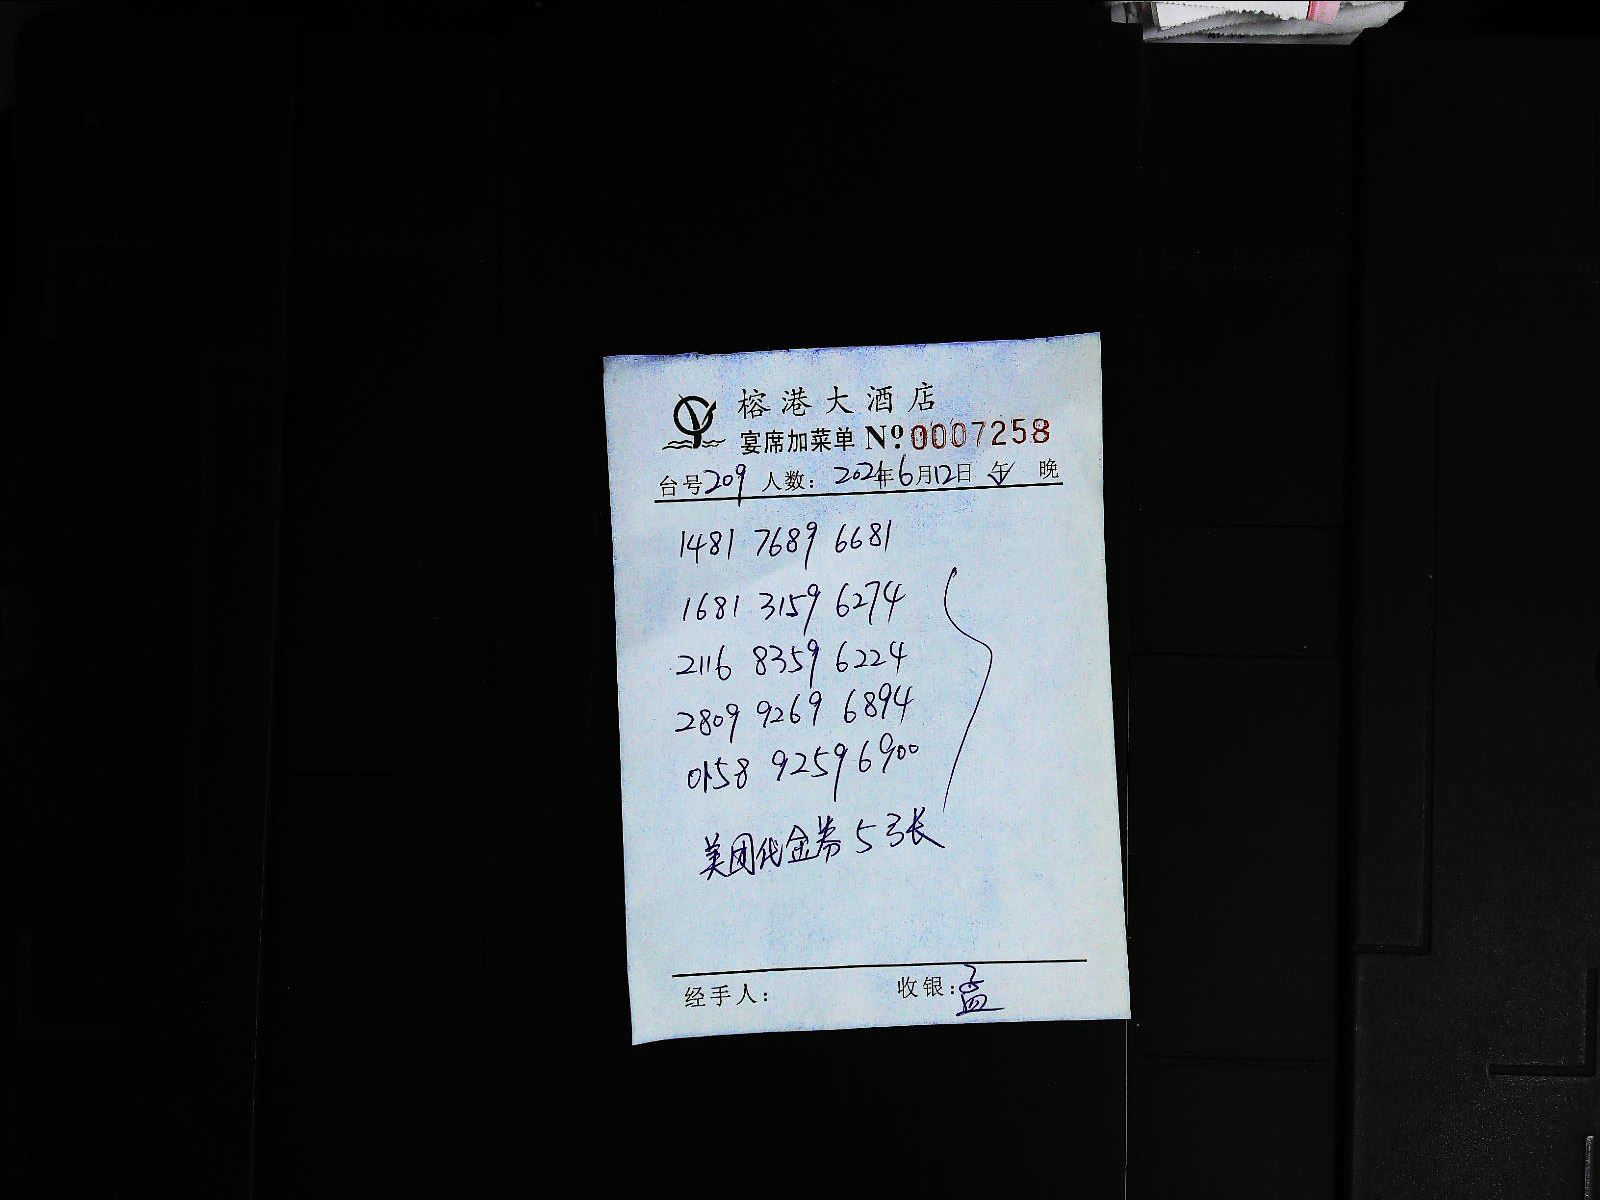 榕港大酒店
宴席加菜单 №0007258
台号209 人数： 2021年6月12日 午 晚
1481 7689 6681
1681 3159 6274
2116 8359 6224
2809 9269 6894
0158 9259 6900
美团代金券5张
经手人： 收银：孟